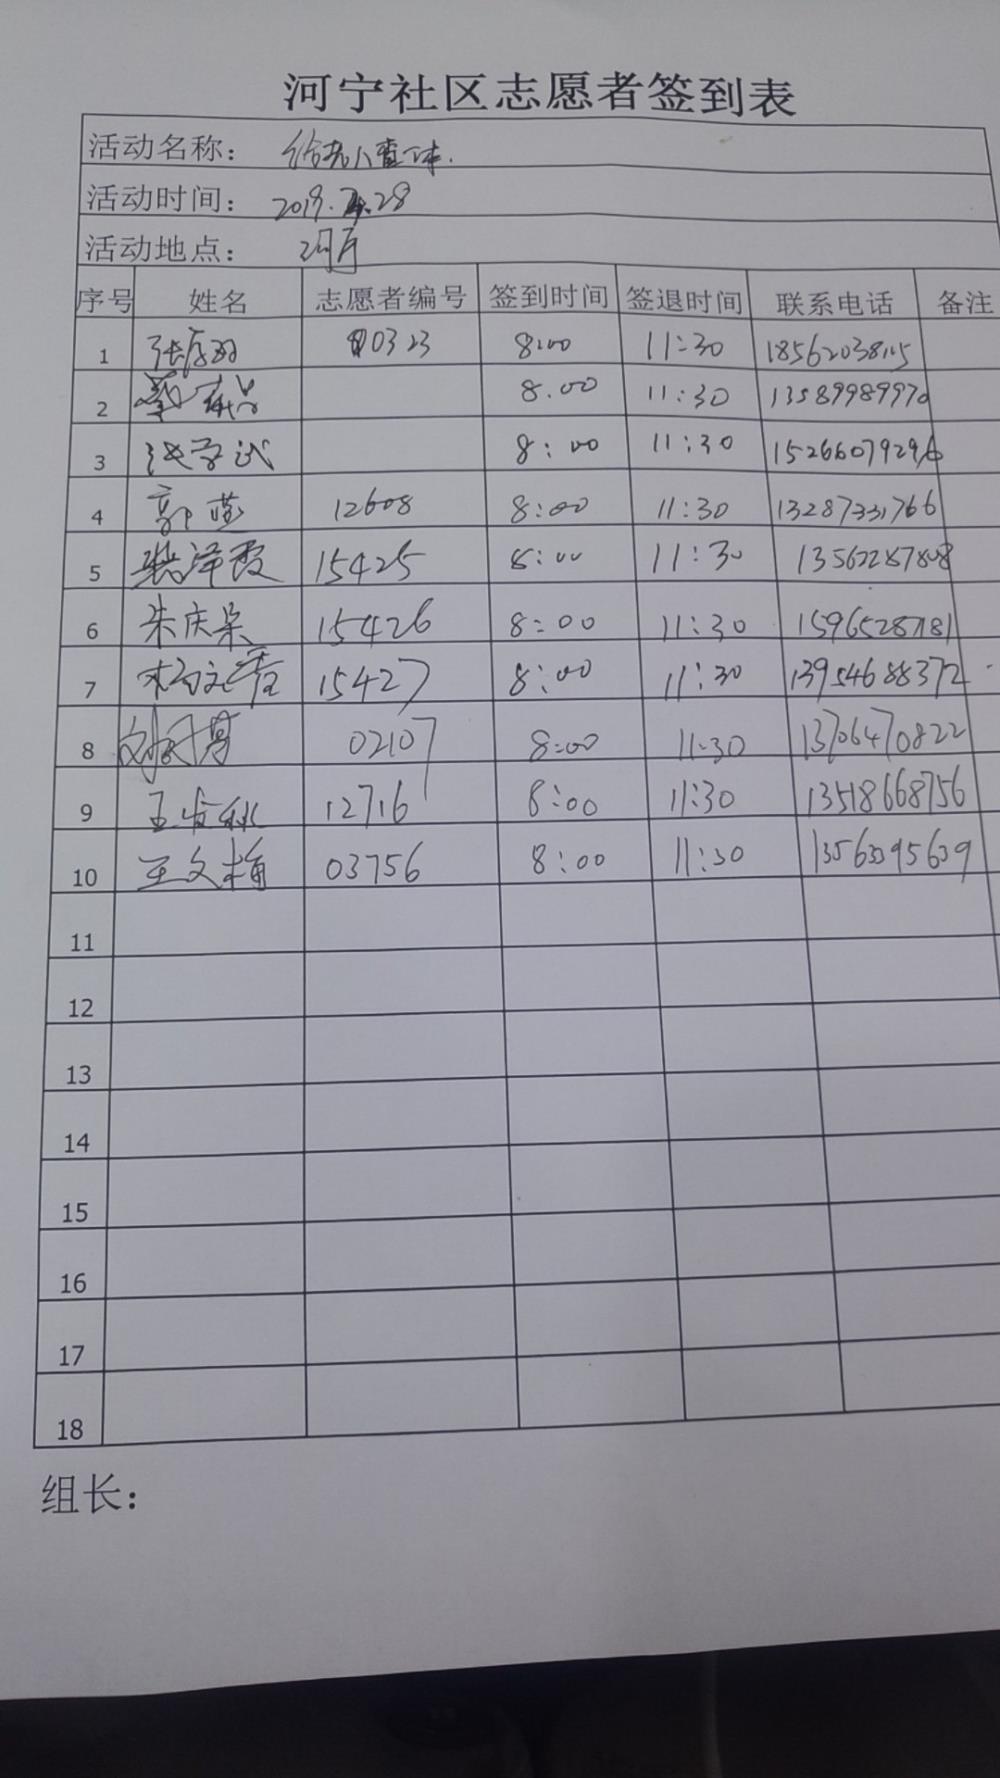 河宁社区志愿者签到表
活动名称: 给老人查体.
活动时间: 2019. 28
活动地点:
序号 姓名 志愿者编号 签到时间 签退时间 联系电话 备注
1 10323 8:00 11:30
2 8.00 11:30 13589989970
3 8:00 11:30 15266079296
4 郭莲 12608 8:00 11:30 13287331766
5 裴泽霞 15425 8:00 11:30 13562287808
6 朱庆荣 15426 8:00 11:30 15965287181
7 杨文香 15427 8:00 11:30 13954688372
8 02107 8:00 11:30 13706470822
9 王发秋 12716 8:00 11:30 13518668756
10 王文梅 03756 8:00 11:30 13563395639
11
12
13
14
15
16
17
18
组长: